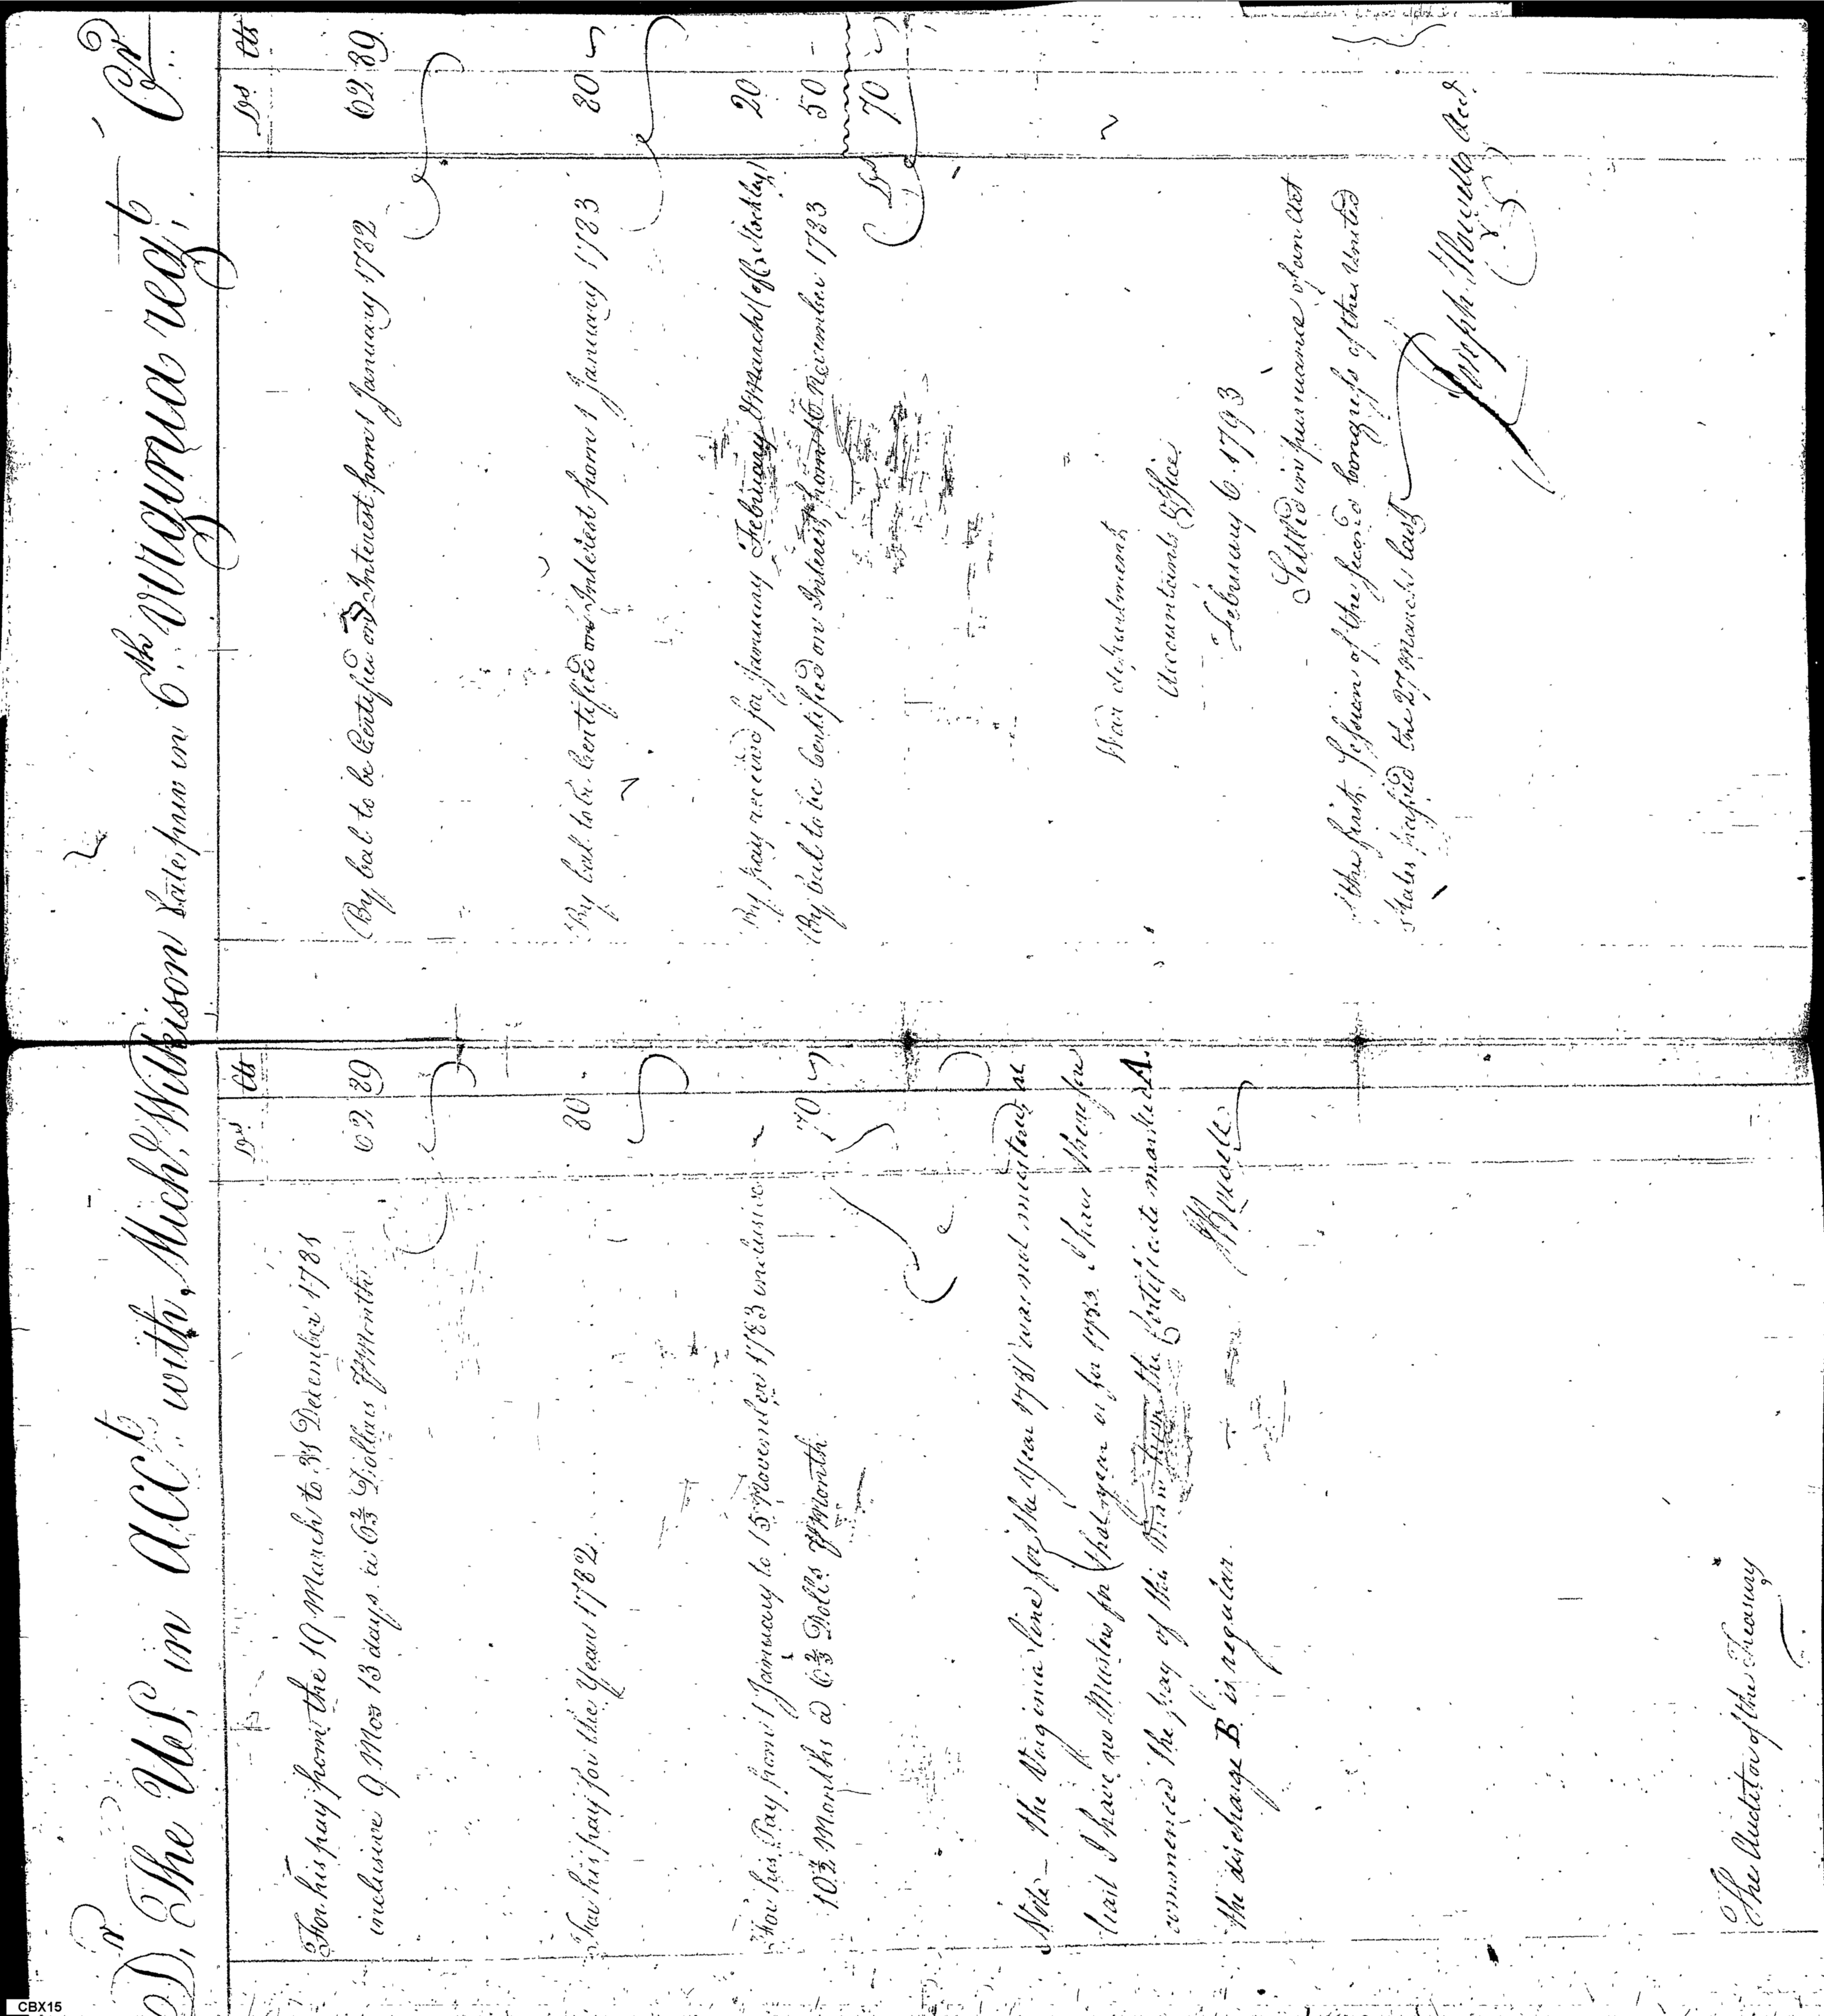 Dr. The US, in acct with, Mich. Wilkison Late priv in 6th Virginia regt, Cr
Drs Cts
For his pay from the 19 March to 31 December 1781
inclusive 9 Mos 13 days a 6 2/3 Dollars Month 62 89
For his pay for the Year 1782 80
For his Pay from 1 January to 15 November 1783 inclusive
10 1/2 Months a 6 2/3 Dolls Month 70
Note - the Virginia line for the Year 1781 was not mustered at
last I have no Musters for that year or for 1783. I have therefore
commenced the pay of this man from the Certificate marked A.
the discharge B is regular.
The Auditor of the Treasury
Drs Cts
By bal to be Certified on Interest from 1 January 1782 62 89
By bal. to be Certified on Interest from 1 January 1783 80
By pay received for January February & March 20
By bal to be Certified on Interest from 16 November 1783 50 -
Drs 70
War department
Accountants Office
February 6. 1793
Settled in pursuance of an act
of the first Session of the second Congress of the United
States passed the 27 March last
Joseph Howell Acct
CBX15